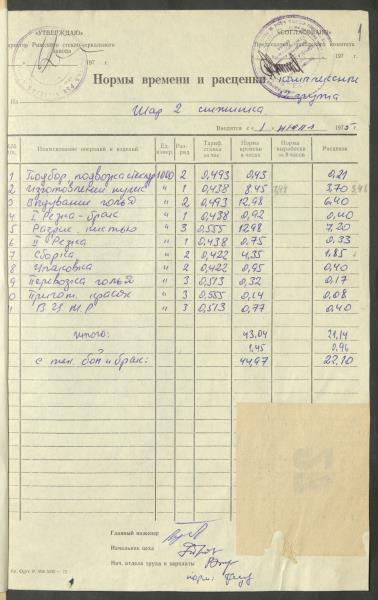 «УТВЕРЖДАЮ» «СОГЛАСОВАНО»
Директор Рижского стекло-зеркального Председатель заводского комитета
завода
197 г. 197 г.
1
Нормы времени и расценки комплексные
12 группа
На Шар 2 снежинка
Вводятся с 1 июля 1975 г.
№№ п/п. Наименование операций и изделий Ед. измер. Разряд Тариф. ставка за час Норма времени в часах Норма выработки за 8 часов Расценка
1 Подбор, подвозка 1000 2 0,493 0,43 0,21
2 Изготовление пулек " 1 0,438 8,45 3,70
3 Выдувание голья " 2 0,493 12,98 6,40
4 I Резка-брак " 1 0,438 0,92 0,40
5 Разрис. кистью " 3 0,555 12,98 7,20
6 II Резка " 1 0,438 0,75 0,33
7 Сборка " 2 0,422 4,35 1,85
8 Упаковка " 2 0,422 0,95 0,40
9 Перевозка голья " 3 0,513 0,32 0,17
0 Пригот. красок " 3 0,555 0,14 0,08
В Ц М Р " 3 0,513 0,77 0,40
Итого: 43,04 21,14
1,45 0,96
с тех. бой и брак: 44,97 22,10
Главный инженер
Начальник цеха
Нач. отдела труда и зарплаты
норм.